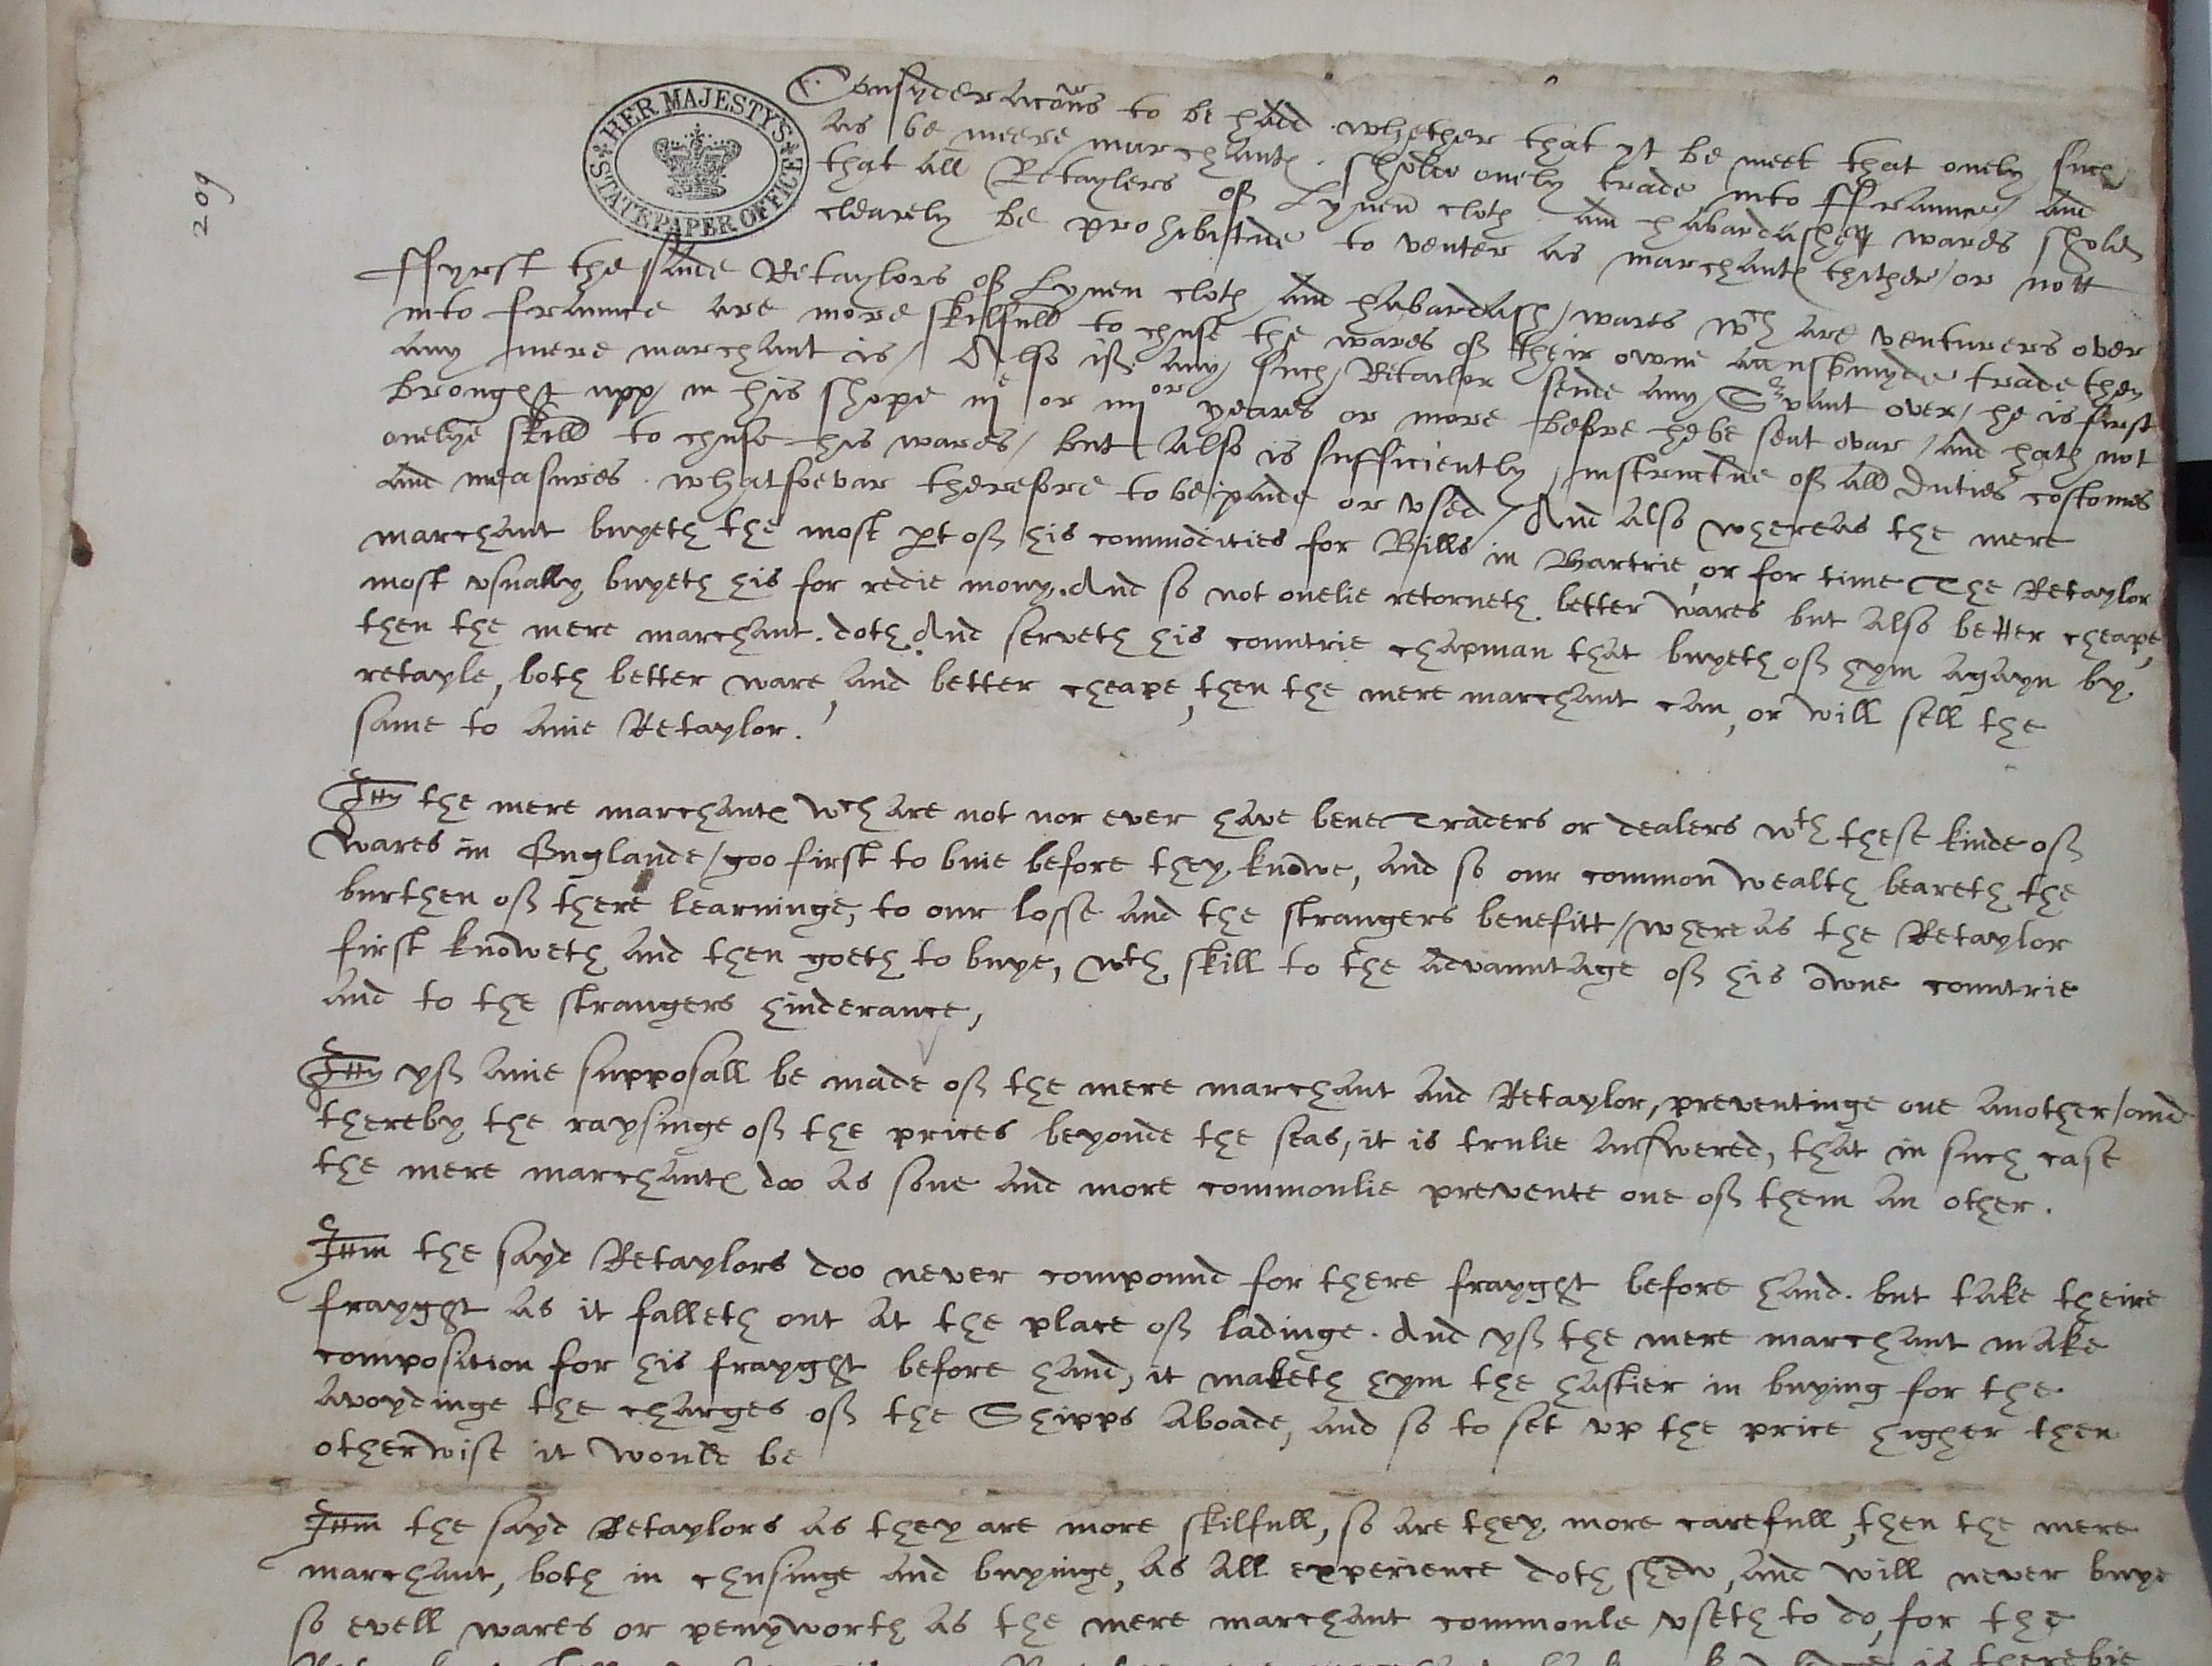 HER MAJESTY'S
STATE PAPER OFFICE
209
Consyderacons to be hadd whether that yt be meet that onely such
as be meere marchantes sholde onely trade into ffraunce / and
that all Retaylers of Lynen cloth and habardashe wares shold
clearely be prohibitide to venter as marchantes thither / or nott
ffyrst the saide Retaylors of Lynen cloth and habardash / wares wch are venturers over
into fraunce are more skilfull to chuse the wares of their owne trade then
any mere marchant is / Also if any such Retailor sende any Servant over / he is first
brought upp in his shope iij e or iiij or yeares or more before he be sent ovar / and hath not
onelye skill to chuse his wares / but also is sufficiently instructide of all duties costomes
and measures whatsoevar therefore to be paide or used / And also whereas the mere
marchant buyeth the most pt of his commodities for Bills in Bartrie, or for time The Retaylor
most usually buyeth his for redie mony. And so not onelie retorneth better wares but also better cheape,
then the mere marchant doth. And serveth his countrie chapman that buyeth of hym agayn by
retayle, both better ware, and better cheape, then the mere marchant can, or will sell the
same to anie Retaylor.
Itm the mere marchantes wch are not nor ever have bene Traders or dealers wth these kinde of
wares in Englande / goo first to buie before they knowe, and so our common wealth beareth the
burthen of there learninge, to our losse and the strangers benefitt / where as the Retaylor
first knoweth and then goeth to buye, wth skill to the advauntage of his owne countrie
and to the strangers hinderance,
Itm yf anie supposall be made of the mere marchant and Retaylor, preventinge one another / and
thereby the raysinge of the prices beyonde the seas, it is trulie answered, that in such case
the mere marchantes doo as sone and more commonlie prevente one of them an other.
Itm the sayd Retaylors doo never compound for there frayght before hand. but take theire
frayght as it falleth out at the place of ladinge. And yf the mere marchant make
composition for his frayght before hand, it maketh hym the hastier in buying for the
avoydinge the charges of the Shipps aboade, and so to set up the price higher then
otherwise it would be
Itm the sayd Retaylors as they are more skilfull, so are they more carefull, then the mere
marchant, both in chusinge and buyinge, as all experience doth shew, and will never buye
so evell wares or penyworth as the mere marchant commonle useth to do, for the
is therebie